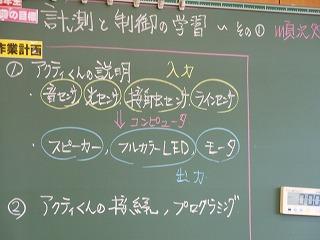 計測と制御の学習 ~ その① 順次
の目標
作業計画
① アクティくんの説明 入力
・音センサ 光センサ 接触センサ ラインセンサ
↓コンピュータ
・スピーカー, フルカラーLED, モータ
出力
② アクティくんの接続, プログラミング